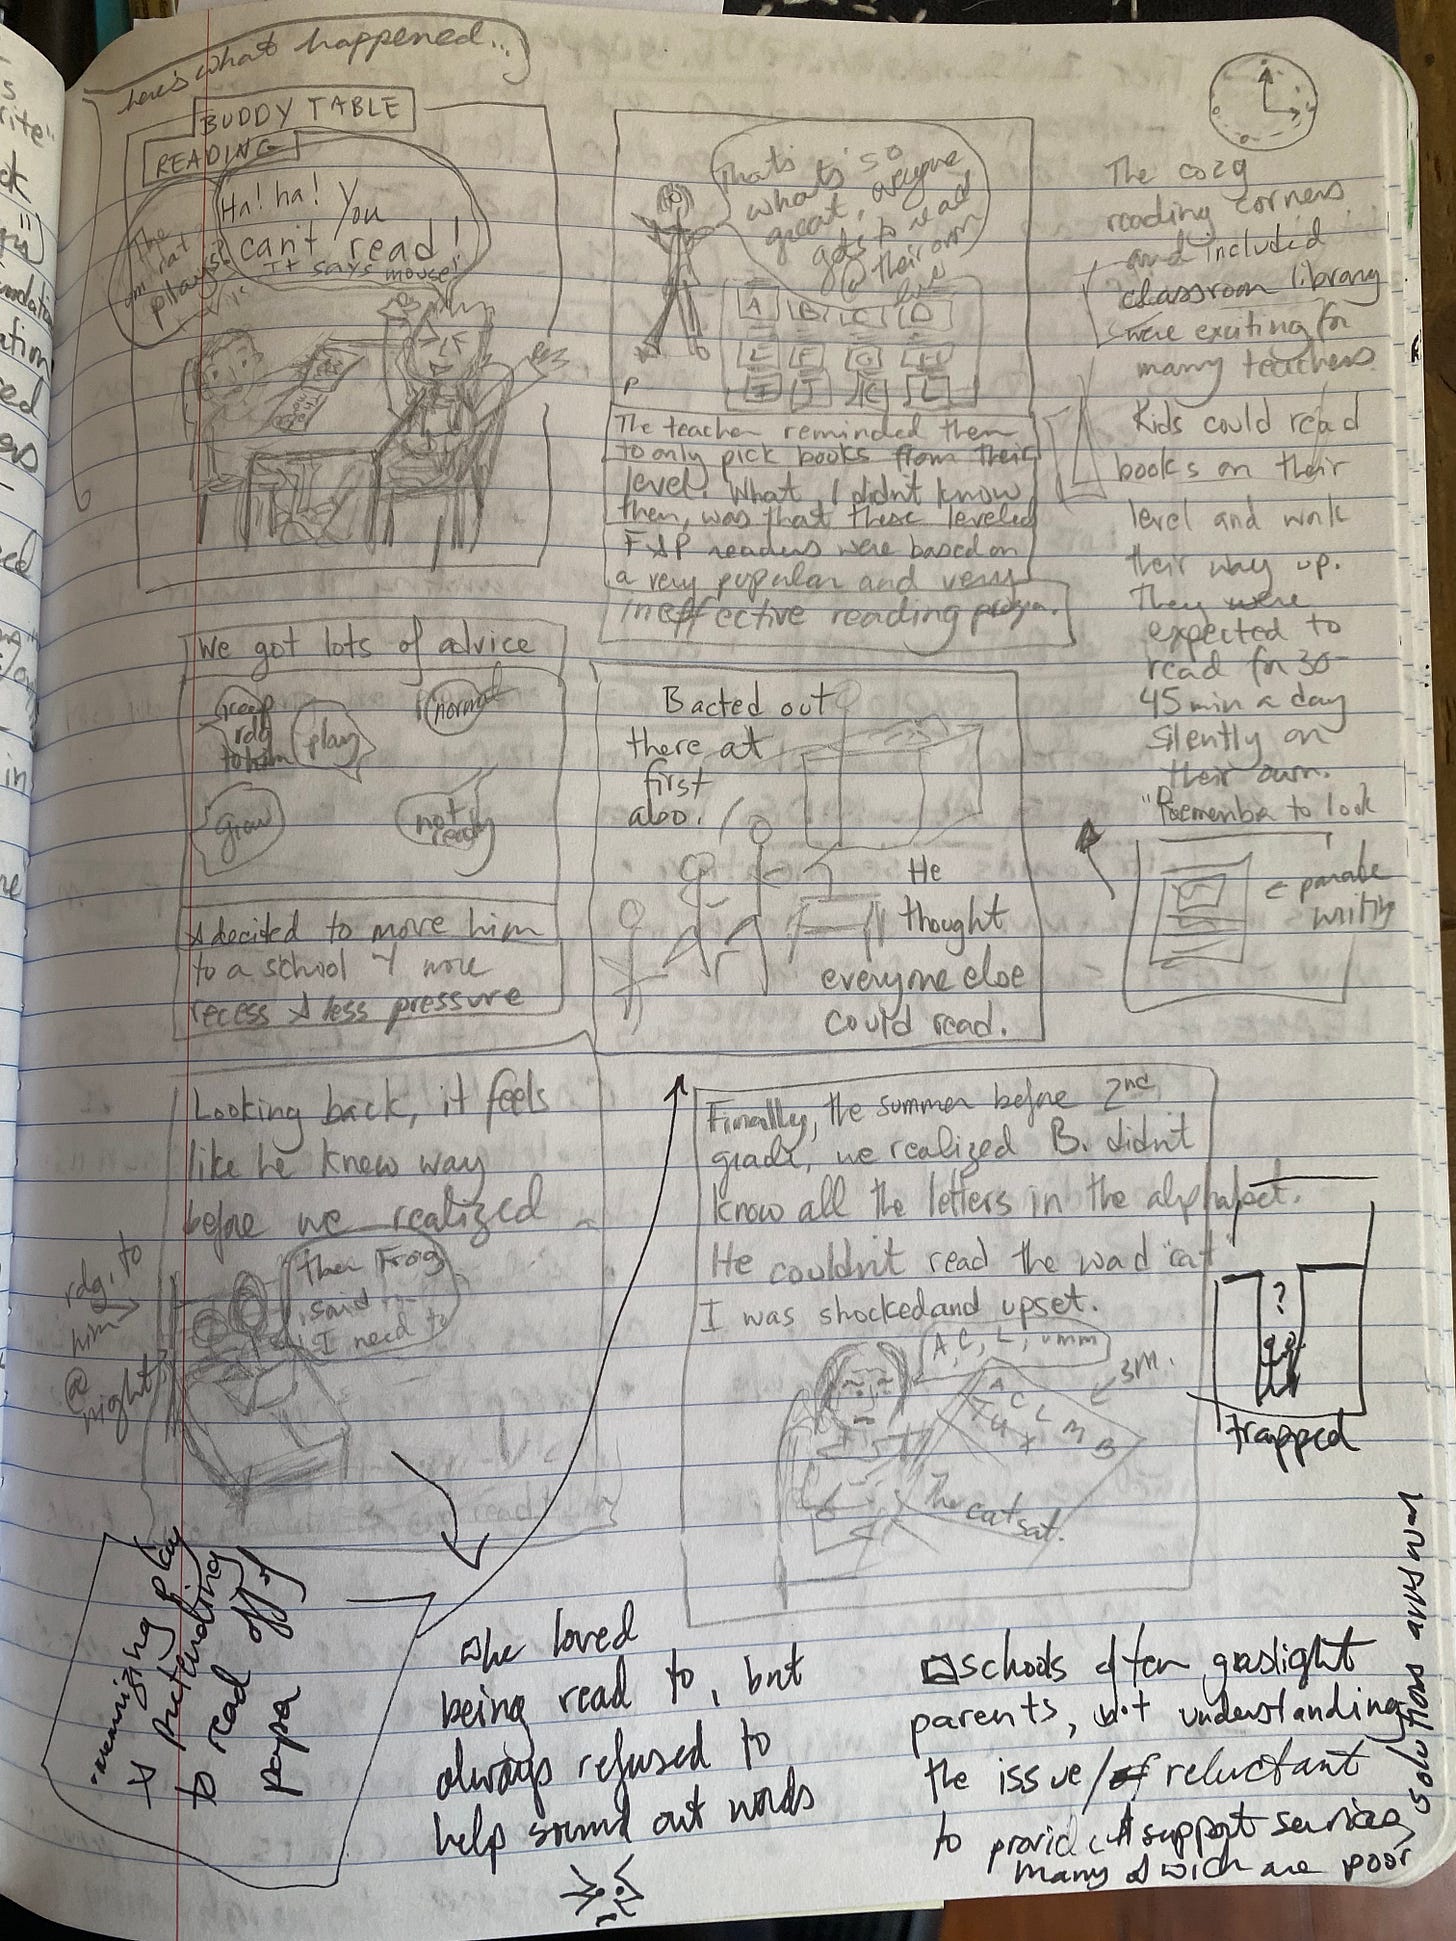 here's what happened...
BUDDY TABLE
READING
Ha! ha! You
can't read!
It says mouse!
The
rat
plays?
That's
what's so
great, everyone
gets to read
@ their own
A B C D
E F G H
I J K L
P
The teacher reminded them
to only pick books from their
level. What I didn't know
then, was that these leveled
F&P readers were based on
a very popular and very
ineffective reading
The cozy
reading corners
and included
classroom library
were exciting for
many teachers.
Kids could read
books on their
level and work
their way up.
They were
expected to
read for 30-
45 min a day
silently on
their own.
"Remember to look
writing
We got lots of advice
keep
rdg
to him
play
normal
grow
not
ready
& decided to move him
to a school more
recess & less pressure
B acted out
there at
first
also.
He
thought
everyone else
could read.
Looking back, it feels
like he knew way
before we realized
then Frog
said
I need to
rdg. to
him
@
night
Finally, the summer before 2nd
grade, we realized B. didn't
know all the letters in the alphabet.
He couldn't read the word "cat"
I was shocked and upset.
A, C, L, umm
A C L M B
T U X
The cat sat.
?
trapped
memizing play
& pretending
to read off of
paper
he loved
being read to, but
always refused to
help sound out words
schools often gaslight
parents, not understanding
the issue/of reluctant
to provide support services,
many of wich are poor
solutions anyway